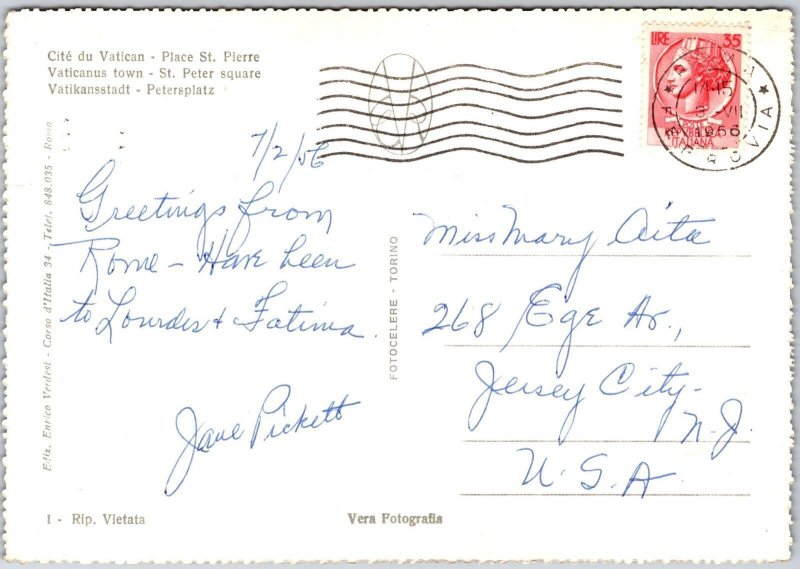 Cité du Vatican - Place St. Pierre
Vaticanus town - St. Peter square
Vatikansstadt - Petersplatz
7/2/56
Greetings from
Rome - Have been
to Lourdes & Fatima.
Jane Pickett
1 - Rip. Vietata
Vera Fotografia
Ediz. Enrico Verdesi - Corso d'Italia 34 - Telef. 848.035 - Roma
FOTOCELERE - TORINO
LIRE 35
ITALIANA
1956
ROVIA
Miss Mary Aita
268 Ege Av.,
Jersey City-
N.J.
U.S.A